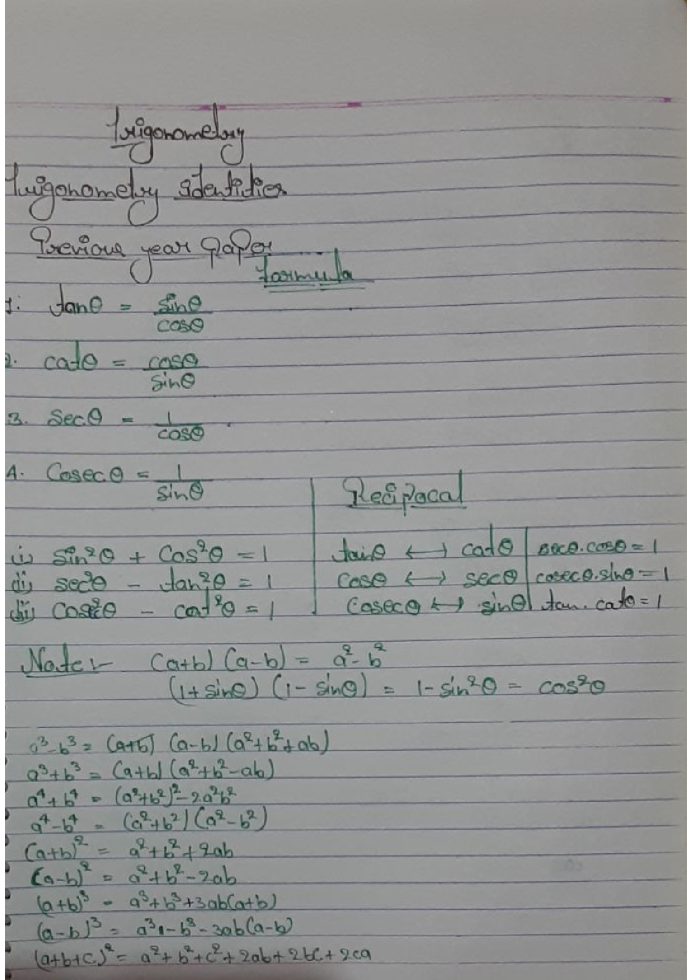 Trigonometry
Trigonometry Identities
Previous year Paper
formula
1. tanθ = sinθ/cosθ
2. cotθ = cosθ/sinθ
3. secθ = 1/cosθ
4. Cosecθ = 1/sinθ
Reciprocal
i) sin²θ + Cos²θ = 1
ii) sec²θ - tan²θ = 1
iii) Cosec²θ - cot²θ = 1
tanθ ↔ cotθ | secθ.cosθ = 1
cosθ ↔ secθ | cosecθ.sinθ = 1
Cosecθ ↔ sinθ | tan.cotθ = 1
Note:- (a+b) (a-b) = a²-b²
(1+sinθ) (1-sinθ) = 1-sin²θ = cos²θ
a³-b³ = (a+b) (a-b) (a²+b²+ab)
a³+b³ = (a+b) (a²+b²-ab)
a⁴+b⁴ = (a²+b²)²-2a²b²
a⁴-b⁴ = (a²+b²) (a²-b²)
(a+b)² = a²+b²+2ab
(a-b)² = a²+b²-2ab
(a+b)³ = a³+b³+3ab(a+b)
(a-b)³ = a³-b³-3ab(a-b)
(a+b+c)² = a²+b²+c²+2ab+2bc+2ca